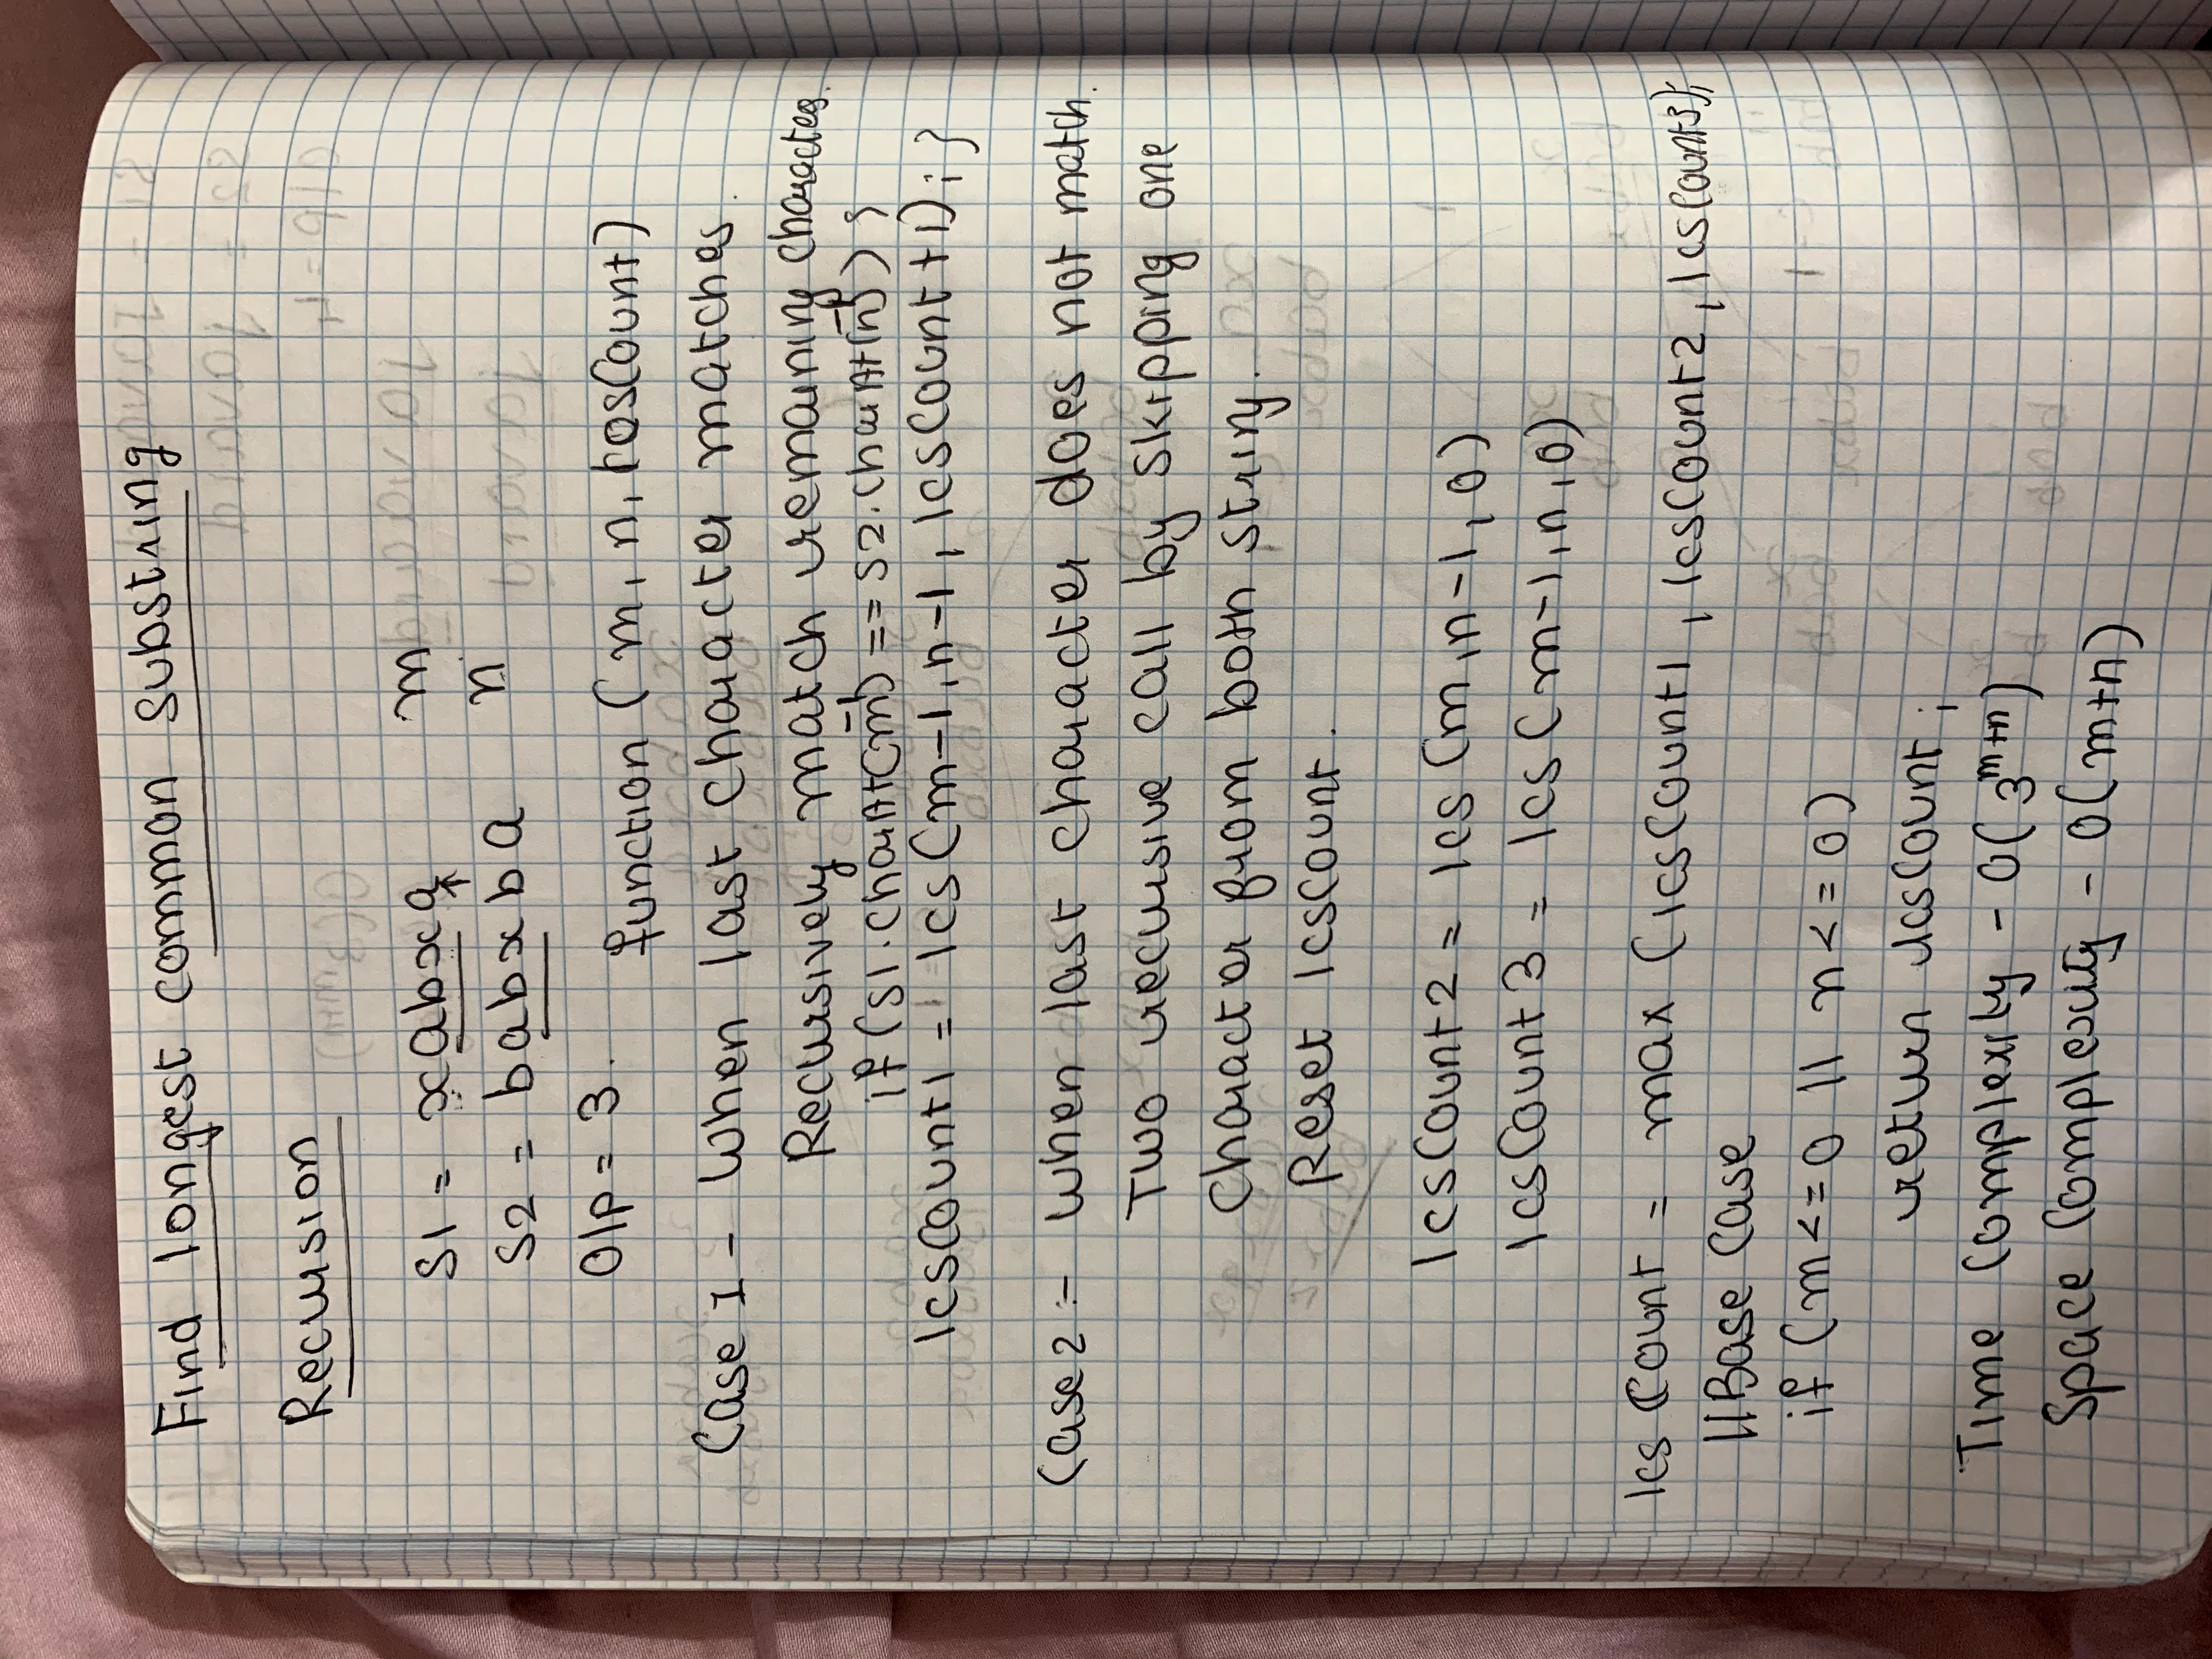 Find longest common substring
Recursion
S1 = xabxa m
S2 = babxba n
O/p = 3.
function (m, n, lcsCount)
Case 1 - When last character matches.
Recursively match remaining characters.
if (S1.charAt(m-1) == S2.charAt(n-1)) {
lcsCount1 = lcs(m-1, n-1, lcsCount+1); }
Case 2 :- When last character does not match.
Two recursive call by skipping one
character from both string.
Reset lcsCount.
lcsCount2 = lcs (m, n-1, 0)
lcsCount3 = lcs (m-1, n, 0)
lcs Count = max (lcsCount1, lcsCount2, lcsCount3);
//Base Case
if (m <= 0 || n <= 0)
return lcsCount;
Time Complexity - O(3^m+n)
Space Complexity - O(m+n)